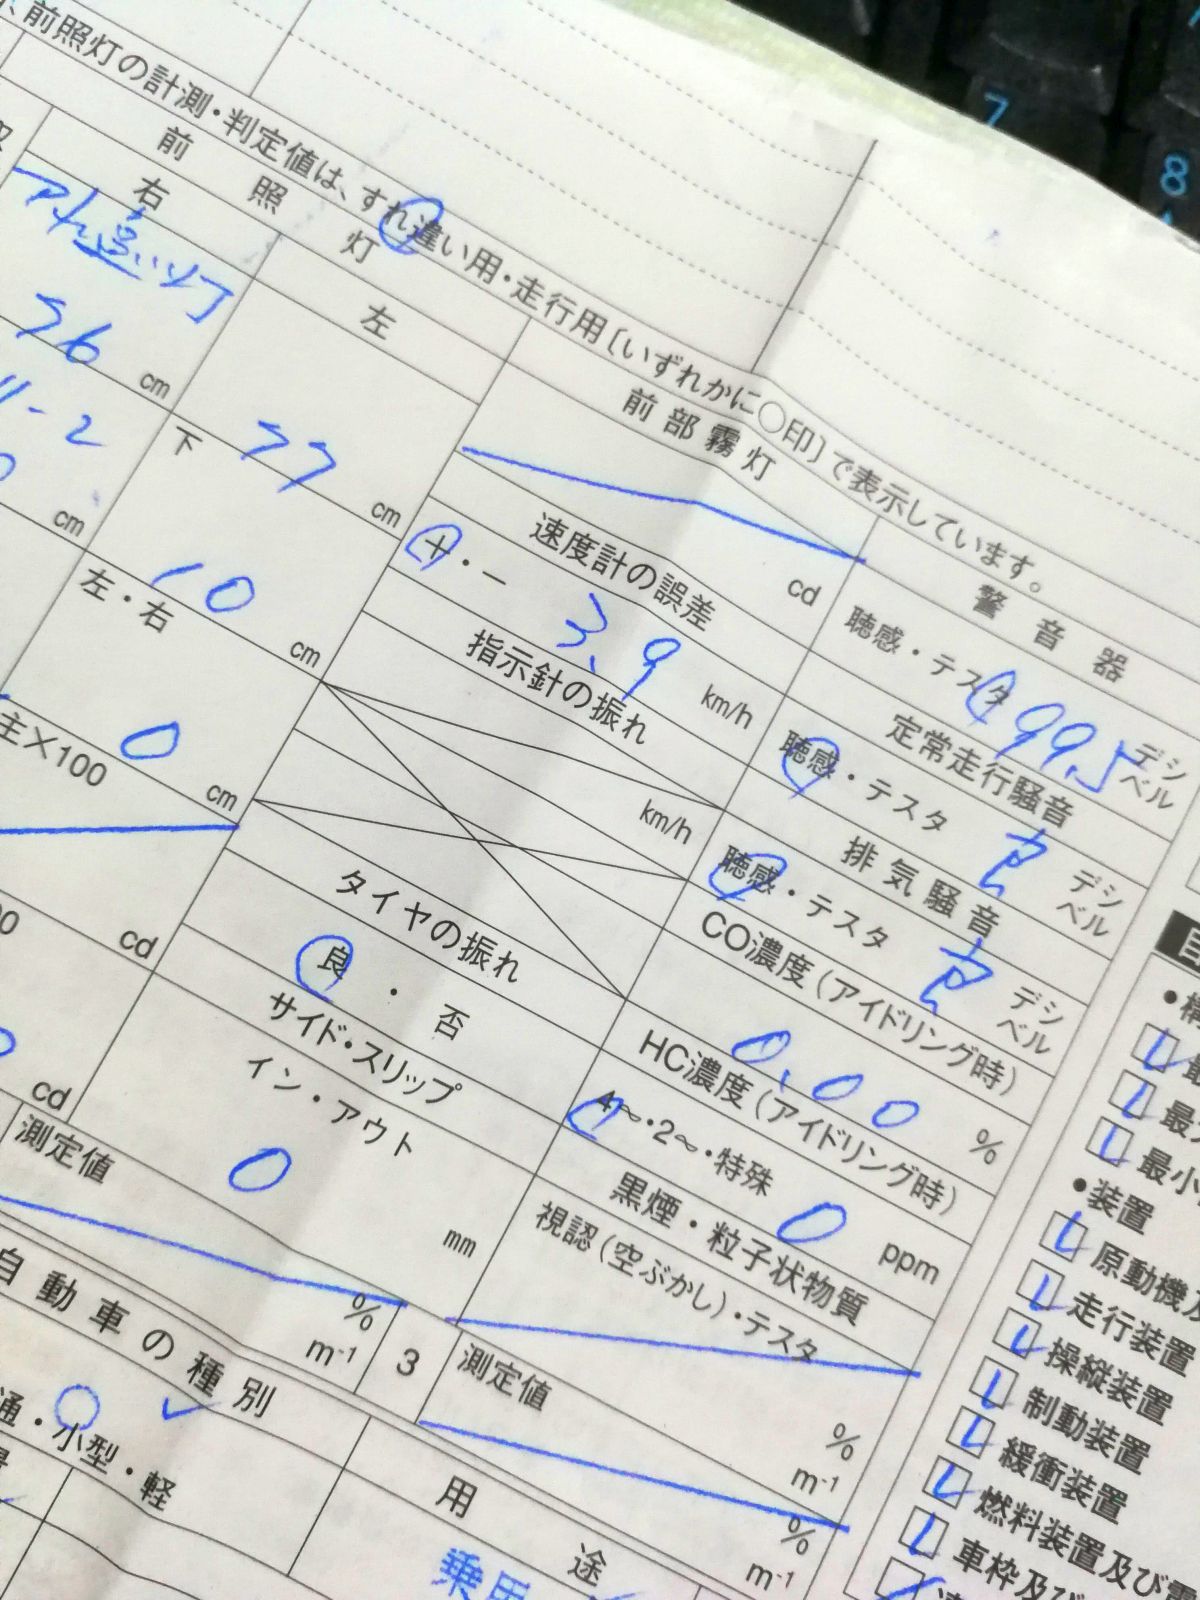 前照灯の計測・判定値は、すれ違い用・走行用〔いずれかに○印〕で表示しています。
前照灯
右
すれ違い灯
76
cm
cm
左
下
77
cm
左・右
10
cm
0
cm
×100
cd
cd
前部霧灯
cd
速度計の誤差
+・−
3.9
km/h
指示針の振れ
km/h
タイヤの振れ
良・否
サイド・スリップ
イン・アウト
0
mm
警音器
聴感・テスタ
99.5
デシベル
定常走行騒音
聴感・テスタ
デシベル
排気騒音
聴感・テスタ
デシベル
CO濃度(アイドリング時)
0.00
%
HC濃度(アイドリング時)
4〜・2〜・特殊
0
ppm
黒煙・粒子状物質
視認(空ぶかし)・テスタ
測定値
%
m-1
3
測定値
%
m-1
%
m-1
自動車の種別
小型・軽
用途
乗用
最大
最小
●装置
原動機
走行装置
操縦装置
制動装置
緩衝装置
燃料装置及び電
車枠及び
7
8